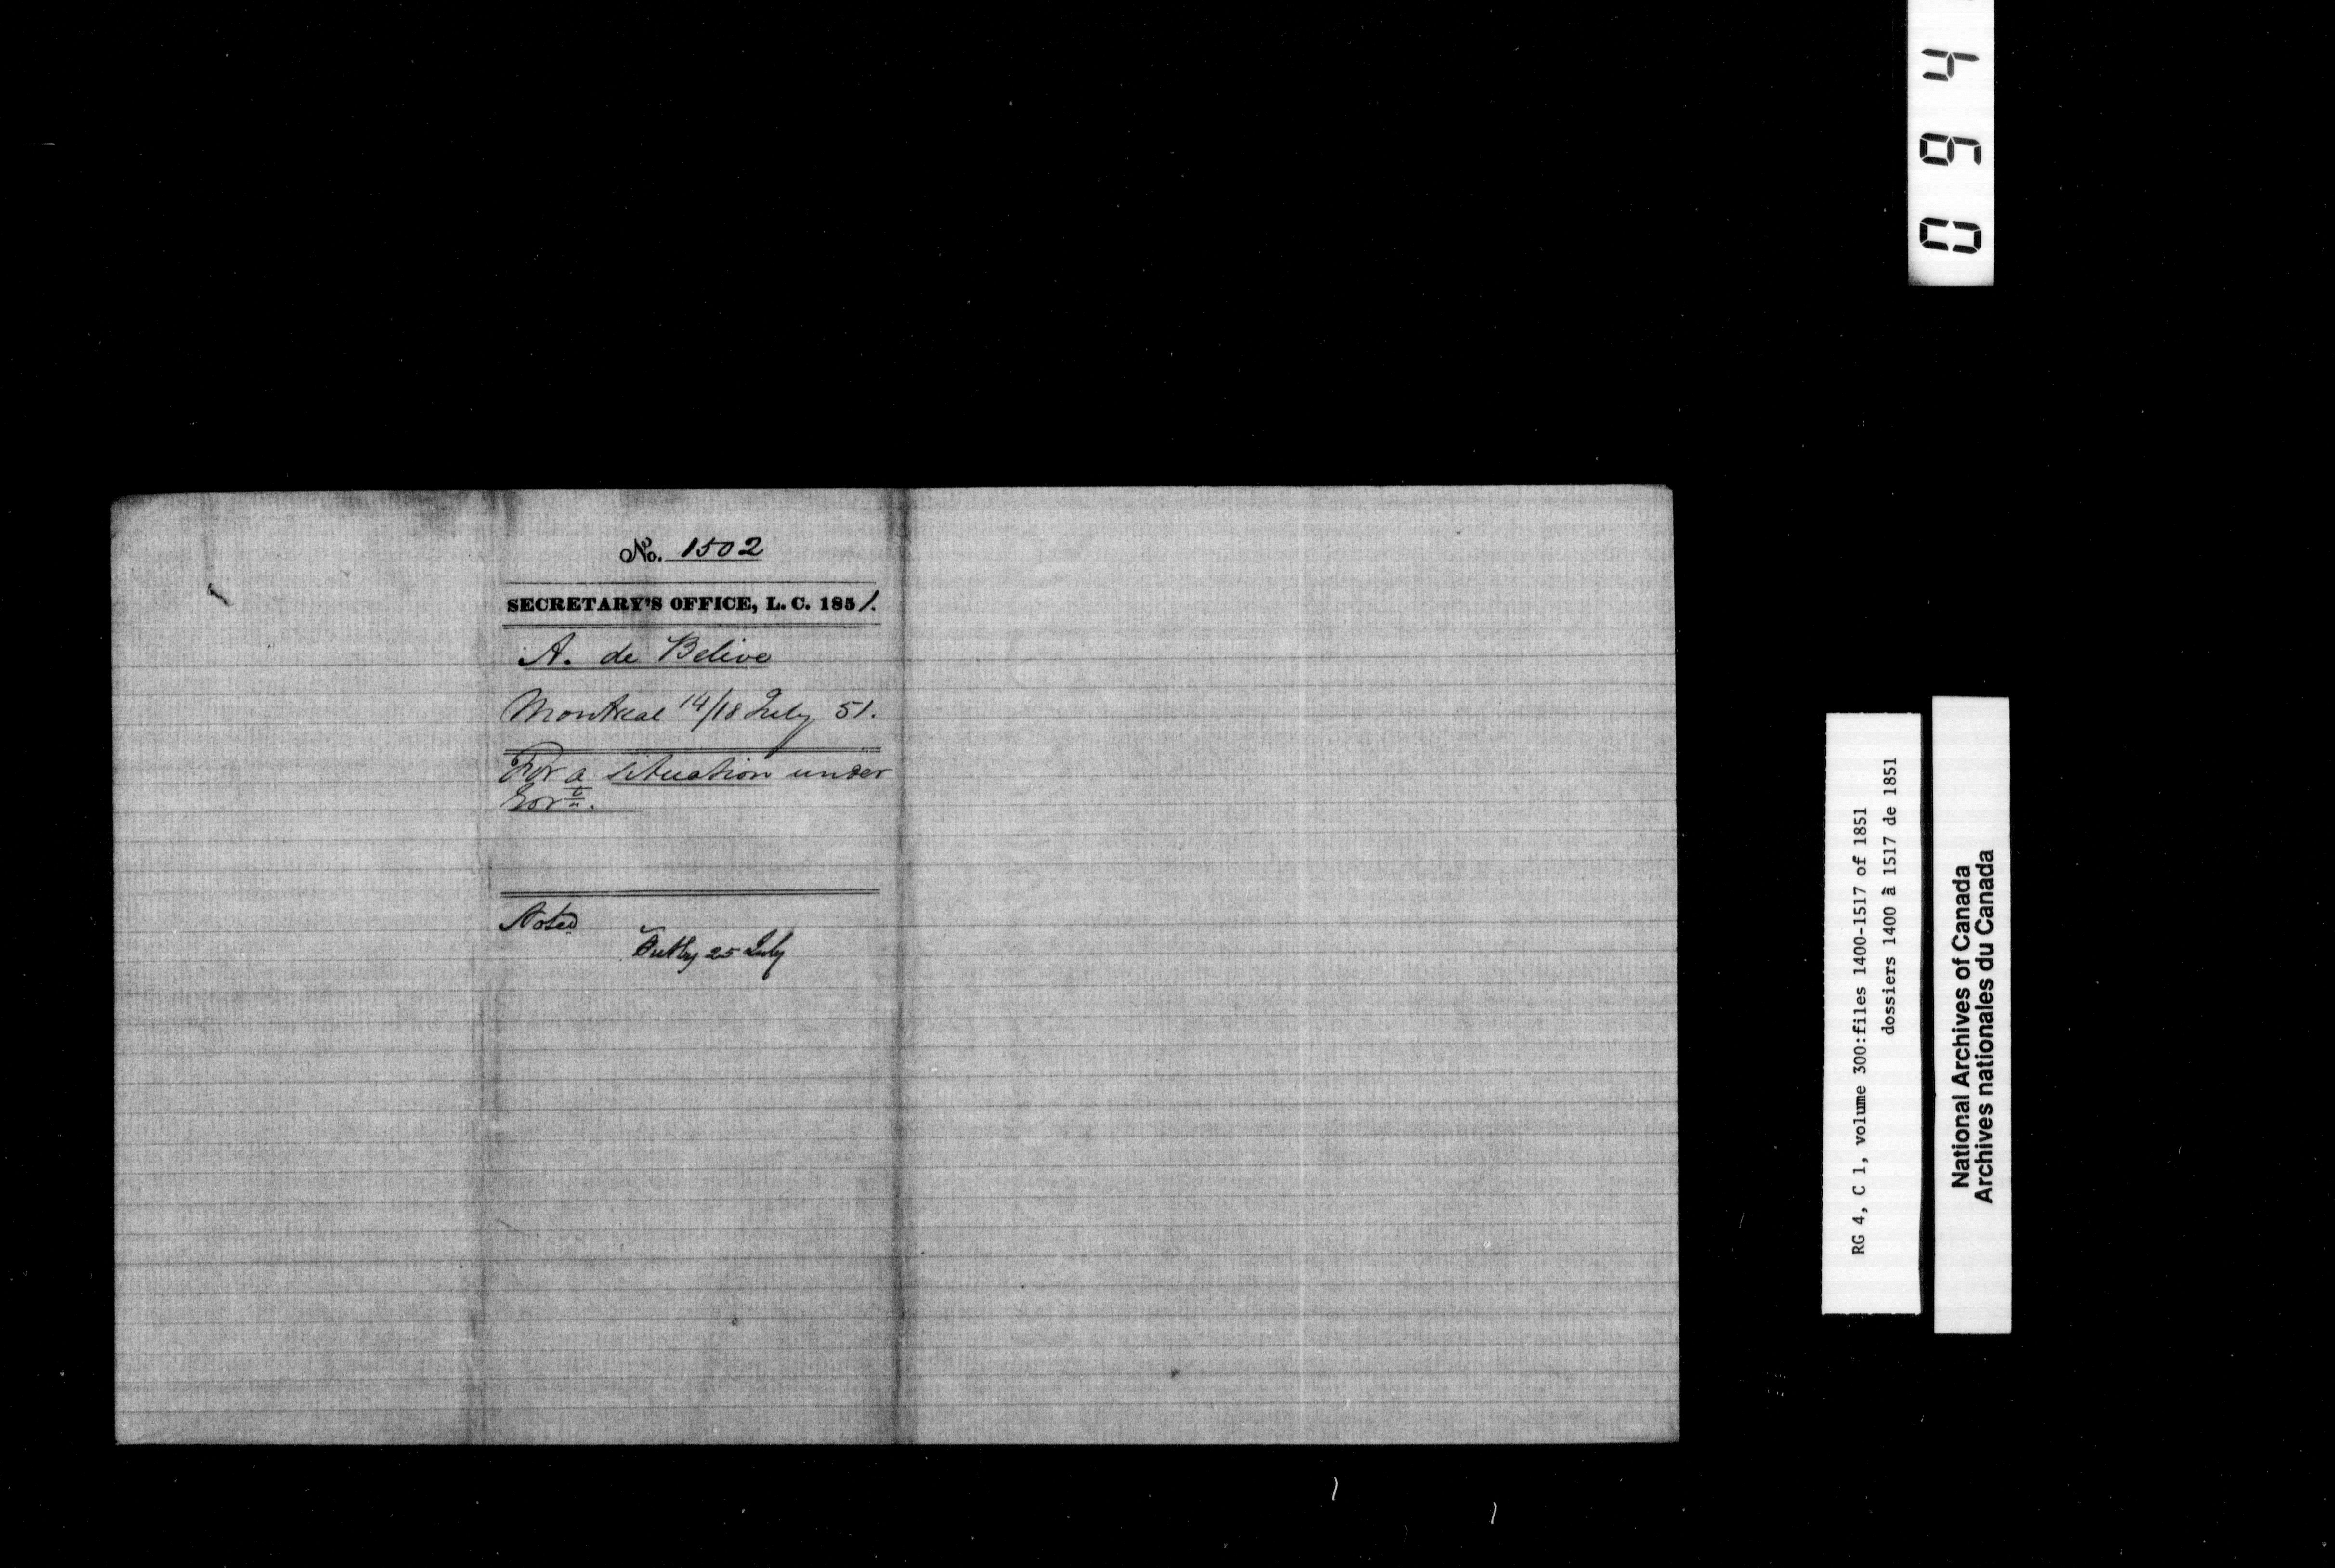 No. 1502
SECRETARY'S OFFICE, L. C. 1851.
A. de Belive
Montreal 14/18 July 51.
For a situation under
Govt.
Noted
25 July
094
RG 4, C 1, volume 300:files 1400-1517 of 1851
dossiers 1400 à 1517 de 1851
National Archives of Canada
Archives nationales du Canada